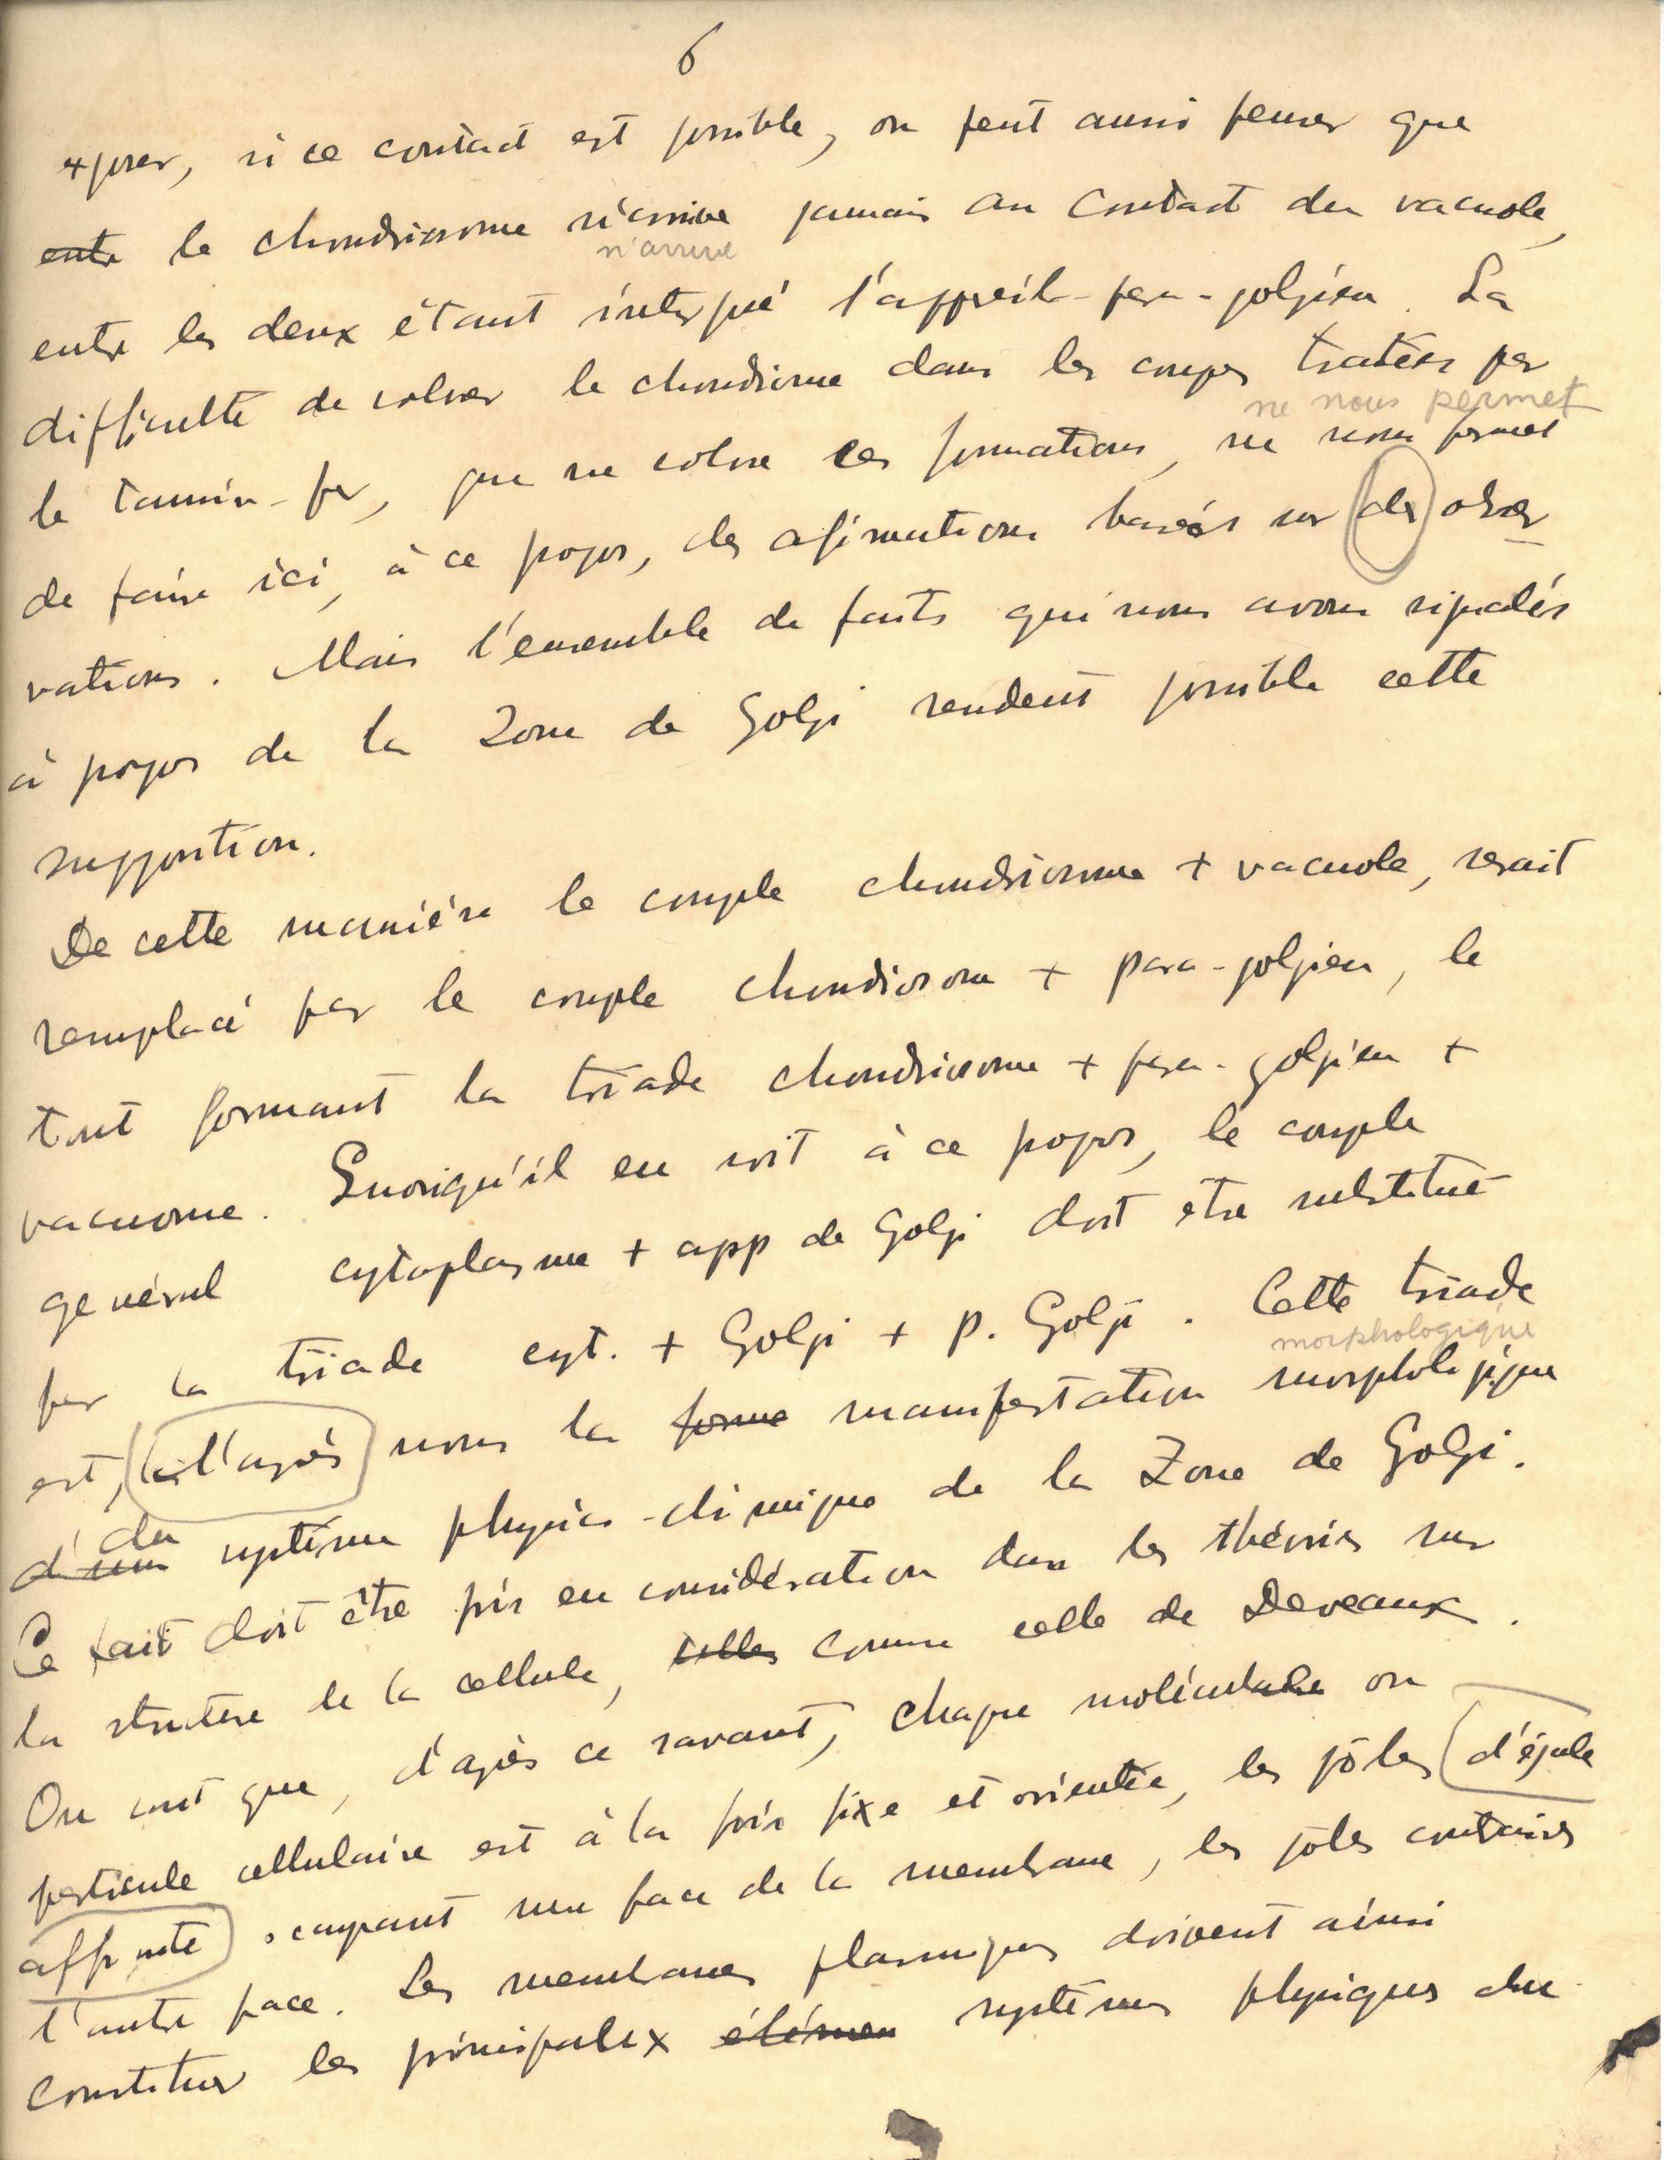 6
xposer, si ce contact est possible, on peut aussi penser que
entre le chondriosome n'arrive jamais au contact du vacuole,
n'arrive
entre les deux étant interposé l'appareil-para-golgien. La
difficulté de colorer le chondriome dans les coupes traitées par
ne nous permet
le tannin-fer, que ne colore ces formations, ne nous permet
de faire ici, à ce propos, des afirmations basées sur des obser
vations. Mais l'ensemble de faits qui nous avons signalés
à propos de la Zone de Golgi rendent possible cette
supposition.
De cette manière le couple chondriosome + vacuole, serait
remplacé par le couple chondriosome + para-golgien, le
tout formant la triade chondriosome + para-golgien +
vacuome. Quoiqu'il en soit à ce propos, le couple
général cytoplasme + app de Golgi doit être substitué
par la triade cyt. + Golgi + p. Golgi. Cette triade
morphologique
est, d'après nous la forme manifestation morphologique
du
d'un système physico-chimique de la Zone de Golgi.
Ce fait doit être pris en considération dans les théories sur
la structure de la cellule, telles comme celle de Deveaux.
On sait que, d'après ce savant, chaque molécule ou
particule cellulaire est à la fois fixe et orientée, les pôles d'égale
affinité occupant une face de la membrane, les pôles contraires
l'autre face. Les membranes plasmiques doivent ainsi
constituer les principaux élémen systèmes physiques du